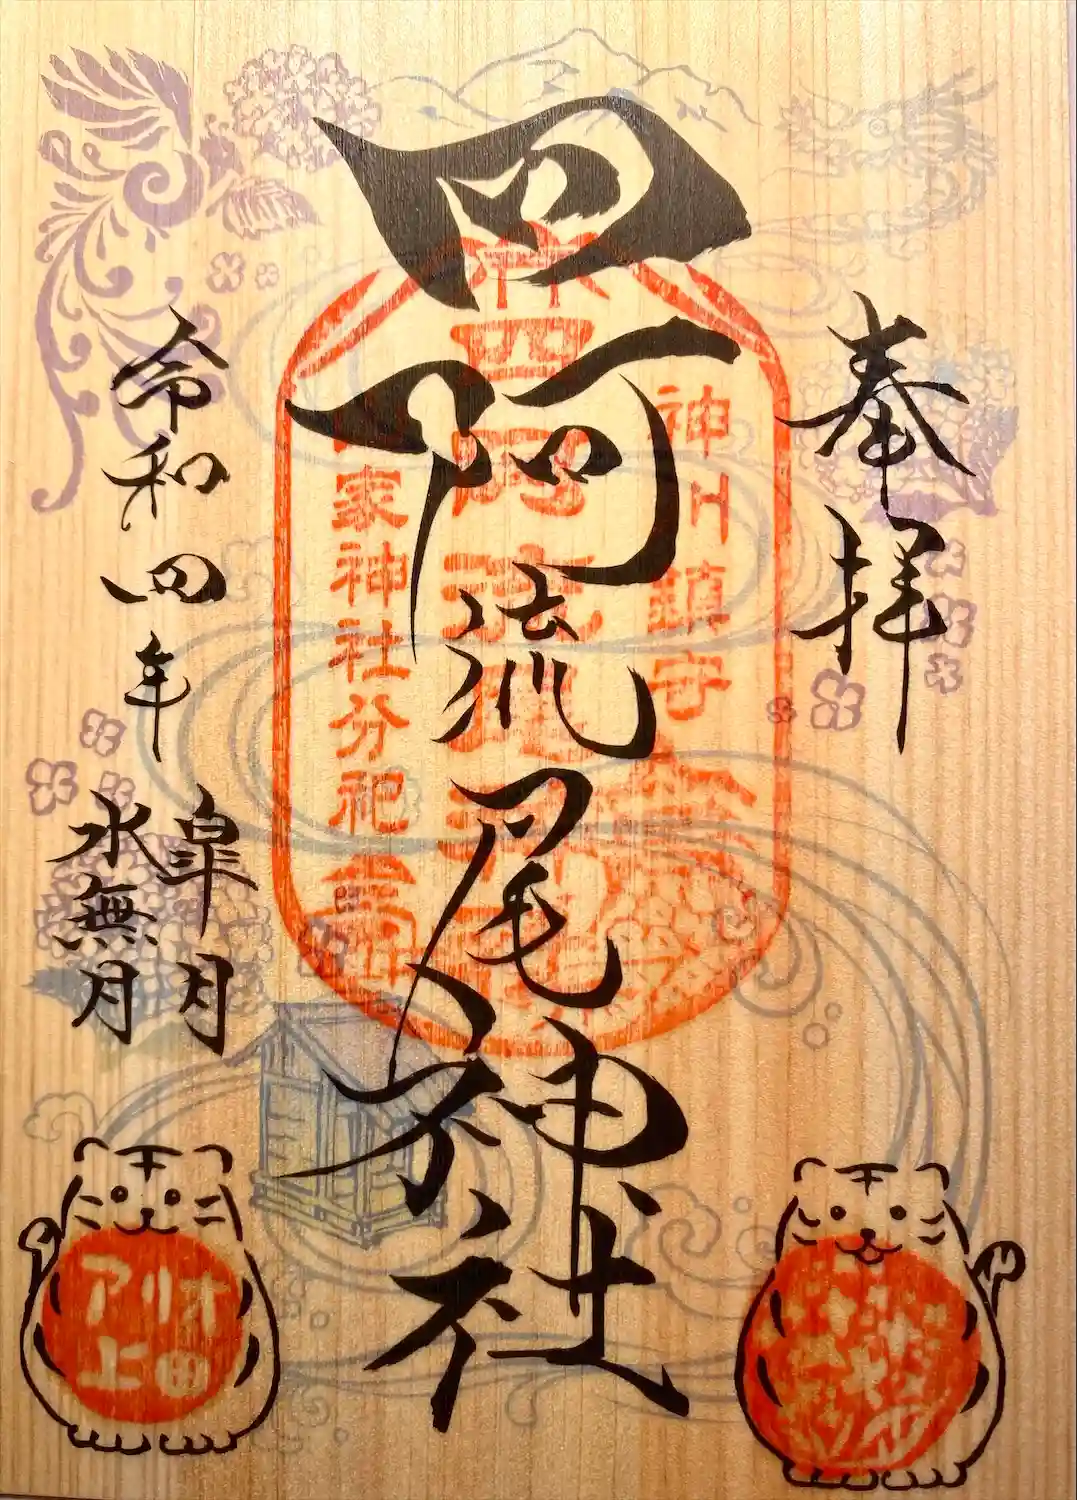 奉拝
四阿流尾神社
令和四年
皐月
水無月
神川鎮守
家神社分祀
アリオ
上田